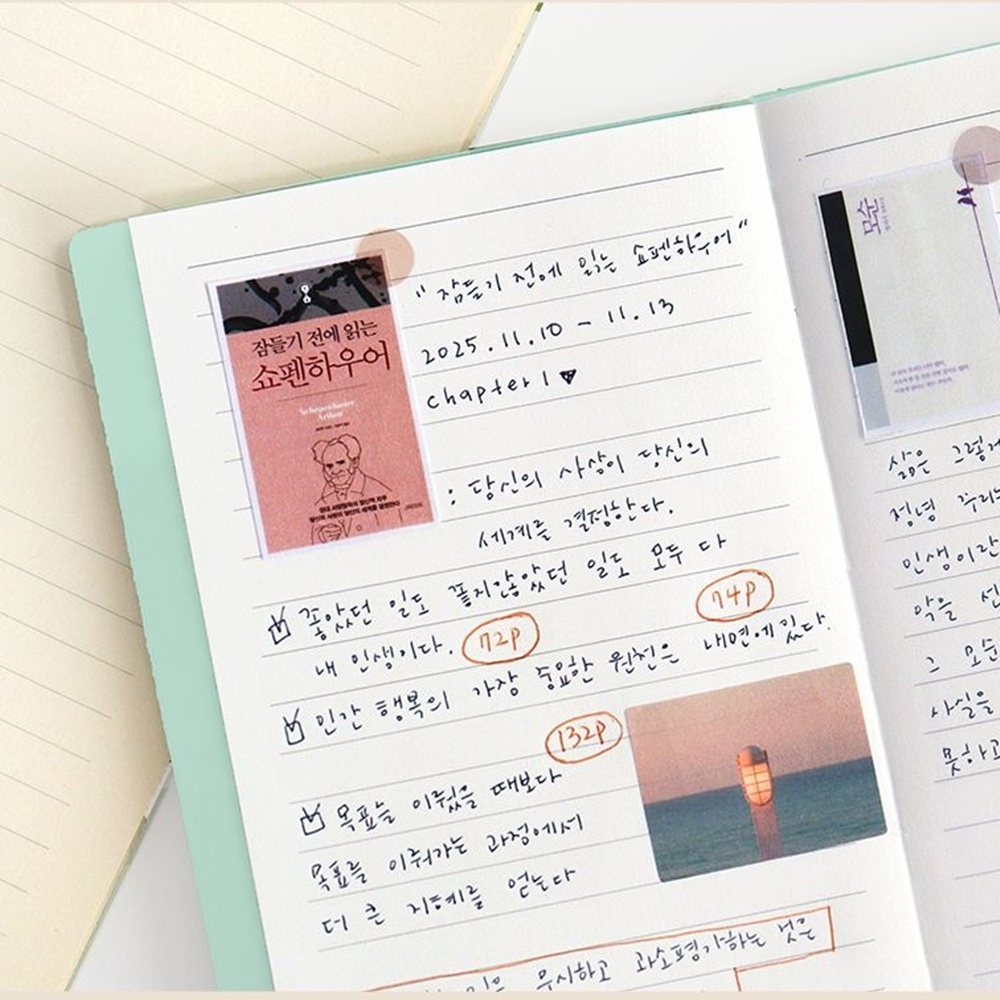 잠들기 전에 읽는
쇼펜하우어
Schopenhauer
Arthur
"잠들기 전에 읽는 쇼펜하우어"
2025.11.10 - 11.13
chapter 1
: 당신의 사상이 당신의
세계를 결정한다.
좋았던 일도 좋지않았던 일도 모두 다
내 인생이다. 72P
74P
인간 행복의 가장 중요한 원천은 내면에 있다.
132P
목표를 이뤘을 때보다
목표를 이뤄가는 과정에서
더 큰 지혜를 얻는다
무시하고 과소평가하는 것은
모순
삶은 그렇게
정녕 우리
인생이란
악을 선
그 모순
사실을
못하고